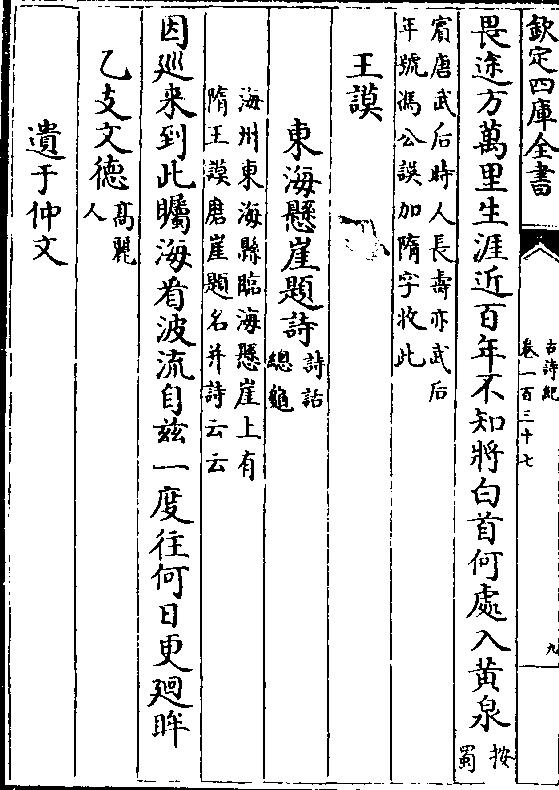 欽定四庫全書
古詩紀
卷一百三十七
九
畏途方萬里生涯近百年不知將白首何處入黄泉
按
蜀
賔唐武后時人長壽亦武后
年號馮公誤加隋字收此
王謨
東海懸崖題詩
詩話
總龜
海州東海縣臨海懸崖上有
隋王謨磨崖題名并詩云云
因廵来到此矚海看波流自兹一度往何日更廻眸
乙支文德
髙麗
人
遺于仲文